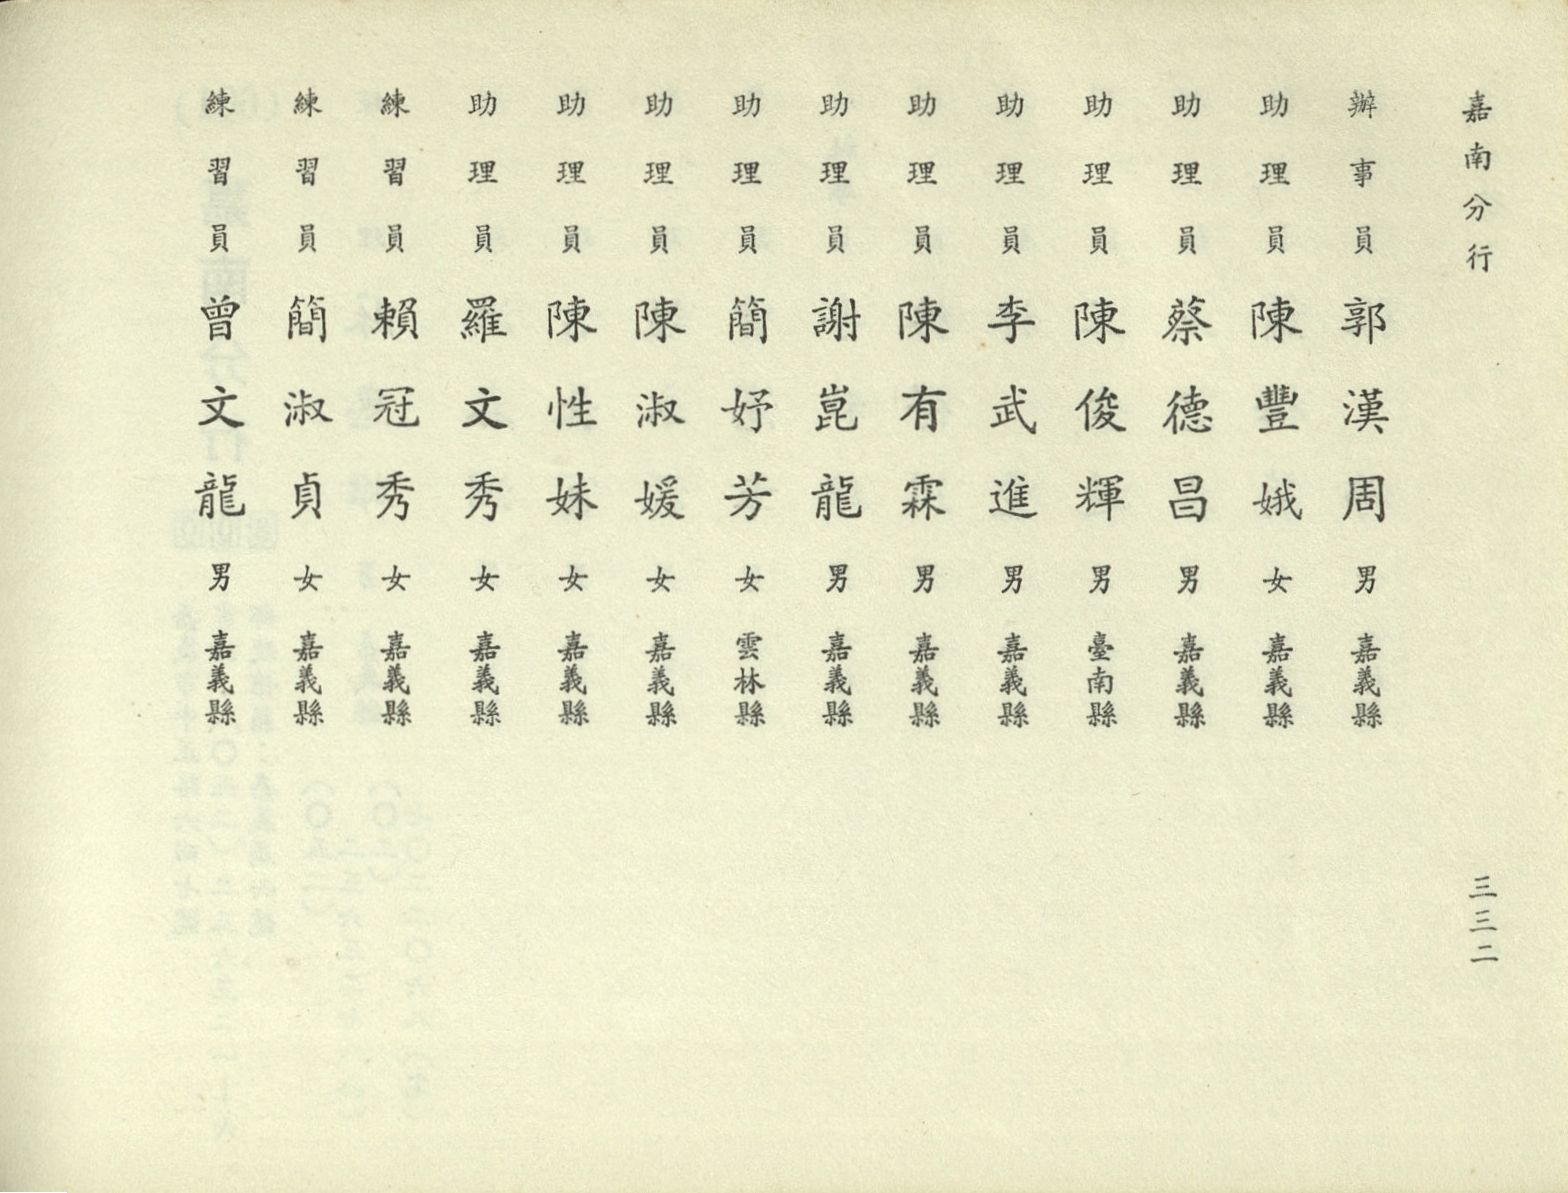 嘉南分行
三三二
辦事員 郭漢周 男 嘉義縣
助理員 陳豐娥 女 嘉義縣
助理員 蔡德昌 男 嘉義縣
助理員 陳俊輝 男 臺南縣
助理員 李武進 男 嘉義縣
助理員 陳有霖 男 嘉義縣
助理員 謝崑龍 男 嘉義縣
助理員 簡妤芳 女 雲林縣
助理員 陳淑媛 女 嘉義縣
助理員 陳性妹 女 嘉義縣
助理員 羅文秀 女 嘉義縣
練習員 賴冠秀 女 嘉義縣
練習員 簡淑貞 女 嘉義縣
練習員 曾文龍 男 嘉義縣